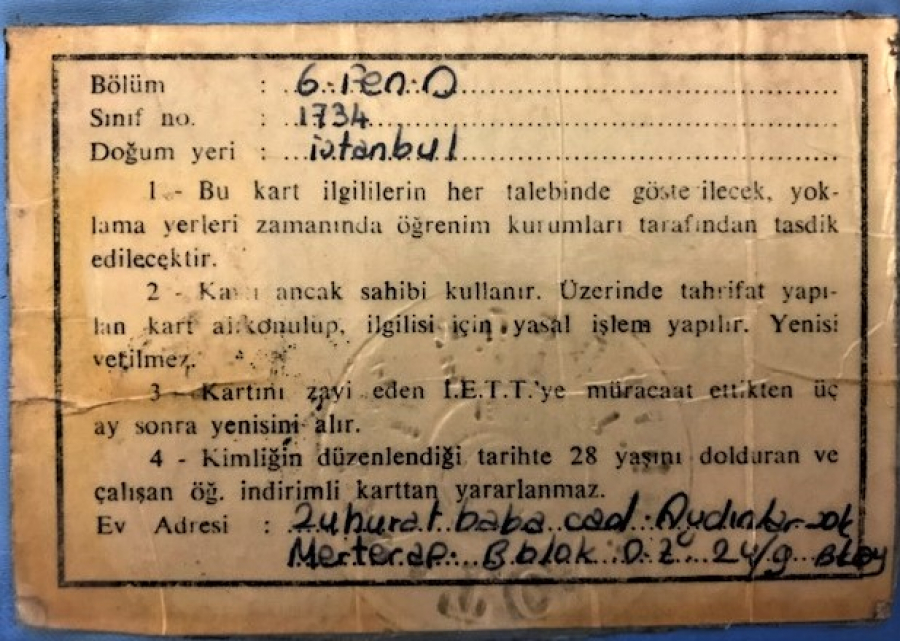 Bölüm : 6. Fen. D
Sınıf no. : 1734
Doğum yeri : istanbul
1 - Bu kart ilgililerin her talebinde göste ilecek, yok-
lama yerleri zamanında öğrenim kurumları tarafından tasdik
edilecektir.
2 - Kartı ancak sahibi kullanır. Üzerinde tahrifat yapı-
lan kart alıkonulup, ilgilisi için yasal işlem yapılır. Yenisi
verilmez.
3 - Kartını zayi eden İ.E.T.T.'ye müracaat ettikten üç
ay sonra yenisini alır.
4 - Kimliğin düzenlendiği tarihte 28 yaşını dolduran ve
çalışan öğ. indirimli karttan yararlanmaz.
Ev Adresi : Zuhurat baba cad. Aydınlar sok
Merterap. B blok D.Z. 24/9